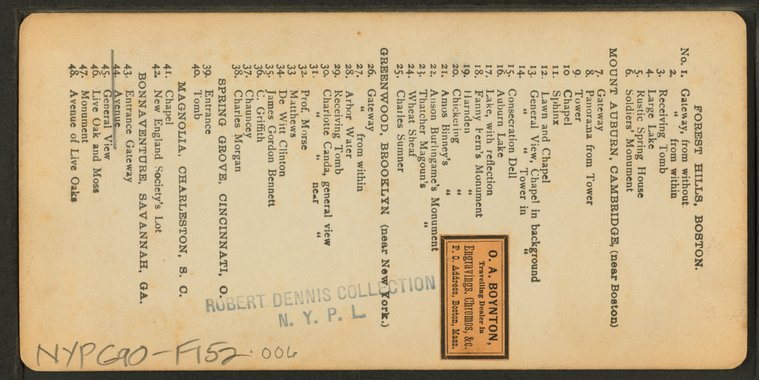 FOREST HILLS, BOSTON.
No. 1. Gateway, from without
2. " from within
3. Receiving Tomb
4. Large Lake
5. Rustic Spring House
6. Soldiers' Monument
MOUNT AUBURN, CAMBRIDGE, (near Boston)
7. Gateway
8. Panorama from Tower
9. Tower
10 Chapel
11. Sphinx
12. Lawn and Chapel
13. General View, Chapel in background
14. " " Tower in "
15. Consecration Dell
16. Auburn Lake
17. Lake, with reflection
18. Fanny Fern's Monument
19. Harnden "
20. Chickering "
21. Amos Binney's "
22. Anson Burlingame's Monument
23. Thatcher Magoun's "
24. Wheat Sheaf
25. Charles Sumner
GREENWOOD, BROOKLYN (near New York.)
26. Gateway
27. " from within
28. Arbor Water
29. Receiving Tomb
30. Charlotte Canda, general view
31. " " near "
32. Prof. Morse
33 Matthews
34. De Witt Clinton
35. James Gordon Bennett
36. C. Griffith
37. Chauncey
38. Charles Morgan
SPRING GROVE, CINCINNATI, O.
39. Entrance
40. Tomb
MAGNOLIA, CHARLESTON, S. C.
41. Chapel
42. New England Society's Lot
BONNAVENTURE, SAVANNAH, GA.
43. Entrance Gateway
44. Avenue
45. General View
46. Live Oak and Moss
47. Monument
48. Avenue of Live Oaks
O. A. BOYNTON,
Travelling Dealer in
Engravings, Chromos, &c.
P. O. Address, Boston, Mass.
ROBERT DENNIS COLLECTION
N. Y. P. L.
NYPG90-F152.006